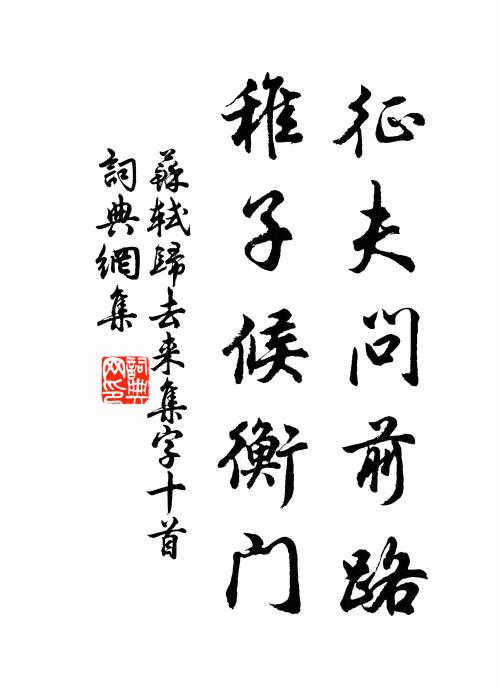 征夫问前路
稚子候衡门
蘇軾歸去来集字十首
詞典網集
詞典网印